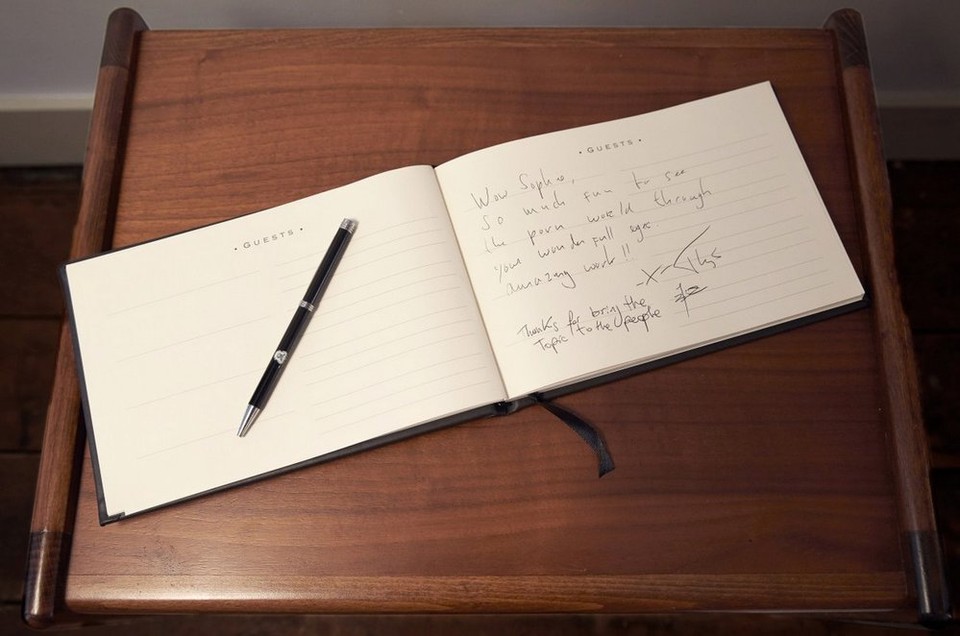 • GUESTS •
• GUESTS •
Wow Sophie,
So much fun to see
the porn world through
your wonderfull eyes.
amazing work!!
-X-
Thanks for bring the
Topic to the people